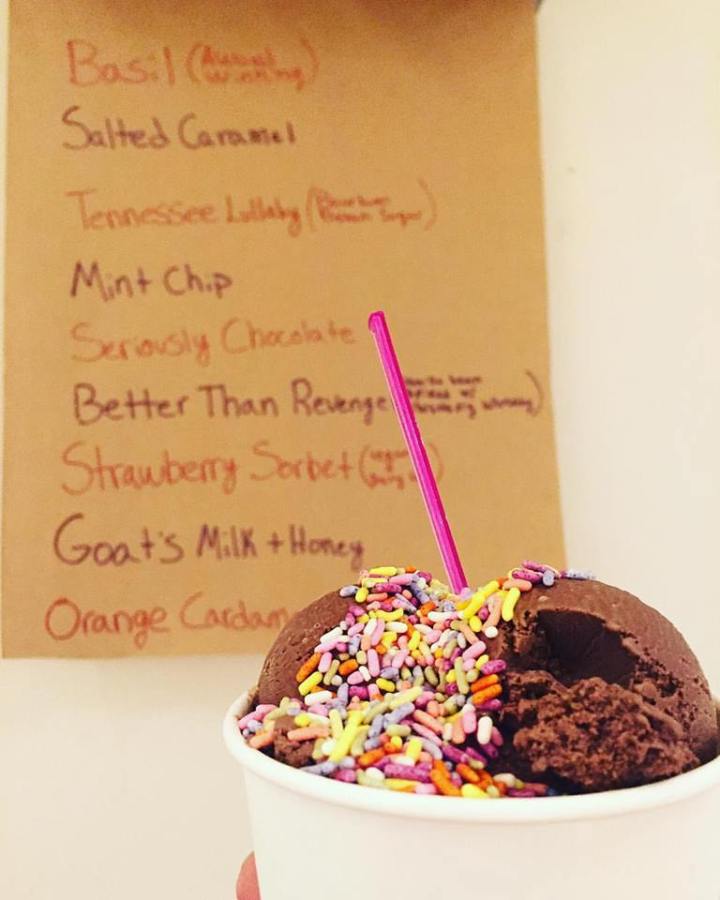 Basil (Award Winning)
Salted Caramel
Tennessee Lullaby (Bourbon Brown Sugar)
Mint Chip
Seriously Chocolate
Better Than Revenge
Strawberry Sorbet (vegan
Goat's Milk + Honey
Orange Cardam